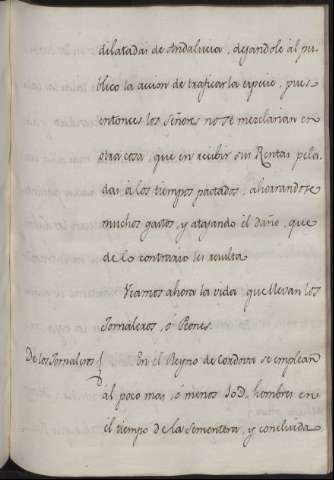 dilatadas de Andalucia, dejandole àl pu-
blico la accion de traficar la especie, pues
entonces los Señores no se mezclarian en
otra cosa, que en recibir sus Rentas pela-
das à los tiempos pactados, ahorrandose
muchos gastos, y atajando el daño, que
de lo contrario les resulta.
Veamos ahora la vida que llevan los
Jornaleros, ó Peones.
De los Jornaleros
En el Reyno de Cordova se emplean
al poco mas, ó menos 50D. hombres en
el tiempo de la Sementera, y concluida